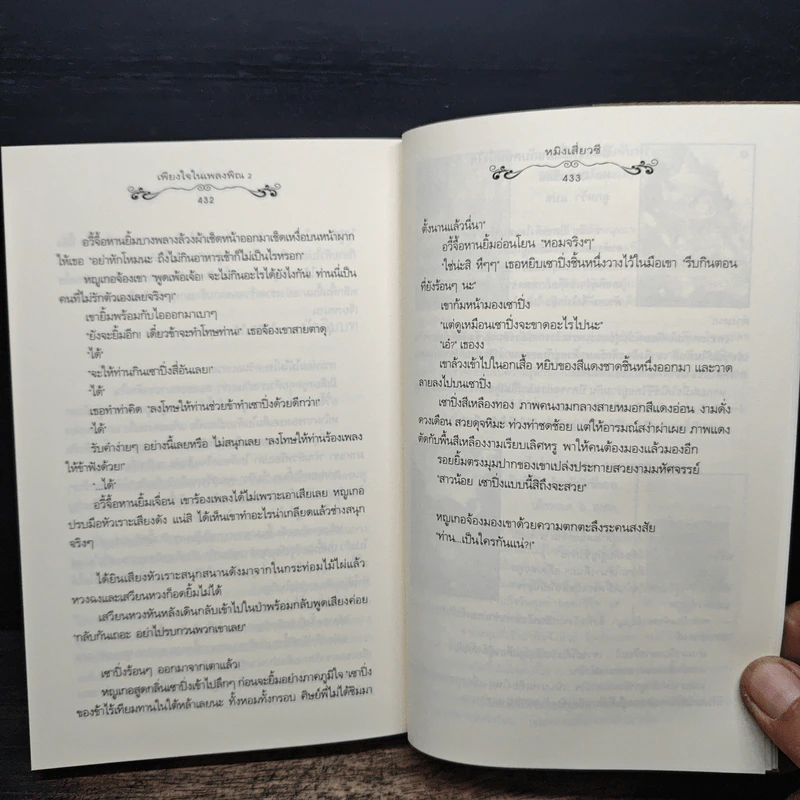 เพียงใจในเพลงพิณ 2
432
อวี้จื้อหานยิ้มบางพลางล้วงผ้าเช็ดหน้าออกมาเช็ดเหงื่อบนหน้าผาก
ให้เธอ "อย่าหักโหมนะ ถึงไม่กินอาหารเช้าก็ไม่เป็นไรหรอก"
หญูเกอจ้องเขา "พูดเพ้อเจ้อ! จะไม่กินอะไรได้ยังไงกัน ท่านนี่เป็น
คนที่ไม่รักตัวเองเลยจริงๆ!"
เขายิ้มพร้อมกับไอออกมาเบาๆ
"ยังจะยิ้มอีก! เดี๋ยวข้าจะทำโทษท่าน!" เธอจ้องเขาสายตาดุ
"ได้"
"จะให้ท่านกินเชาปิ่งสี่อันเลย!"
"ได้"
เธอทำท่าคิด "ลงโทษให้ท่านช่วยข้าทำเชาปิ่งด้วยดีกว่า!"
"ได้"
รับคำง่ายๆ อย่างนี้เลยหรือ ไม่สนุกเลย "ลงโทษให้ท่านร้องเพลง
ให้ข้าฟังด้วย!"
"...ได้"
อวี้จื้อหานยิ้มเจื่อน เขาร้องเพลงได้ไม่เพราะเอาเสียเลย หญูเกอ
ปรบมือหัวเราะเสียงดัง แน่สิ ได้เห็นเขาทำอะไรน่าเกลียดแล้วช่างสนุก
จริงๆ
ได้ยินเสียงหัวเราะสนุกสนานดังมาจากในกระท่อมไม้ไผ่แล้ว
หวงฉงและเสวียนหวงก็อดยิ้มไม่ได้
เสวียนหวงหันหลังเดินกลับเข้าไปในป่าพร้อมกลับพูดเสียงค่อย
"กลับกันเถอะ อย่าไปรบกวนพวกเขาเลย"
เชาปิ่งร้อนๆ ออกมาจากเตาแล้ว!
หญูเกอสูดกลิ่นเชาปิ่งเข้าไปลึกๆ ก่อนจะยิ้มอย่างภาคภูมิใจ "เชาปิ่ง
ของข้าไร้เทียมทานในใต้หล้าเลยนะ ทั้งหอมทั้งกรอบ ศิษย์พี่ไม่ได้ชิมมา
หมิงเสี่ยวซี
433
ตั้งนานแล้วนี่นา"
อวี้จื้อหานยิ้มอ่อนโยน "หอมจริงๆ"
"ใช่น่ะสิ หึๆๆ" เธอหยิบเชาปิ่งชิ้นหนึ่งวางไว้ในมือเขา "รีบกินตอน
ที่ยังร้อนๆ นะ"
เขาก้มหน้ามองเชาปิ่ง
"แต่ดูเหมือนเชาปิ่งจะขาดอะไรไปนะ"
"เอ๋?" เธองง
เขาล้วงเข้าไปในอกเสื้อ หยิบของสีแดงชาดชิ้นหนึ่งออกมา และวาด
ลายลงไปบนเชาปิ่ง
เชาปิ่งสีเหลืองทอง ภาพคนงามกลางสายหมอกสีแดงอ่อน งามดั่ง
ดวงเดือน สวยดุจหิมะ ท่วงท่าชดช้อย แต่ให้อารมณ์สง่าผ่าเผย ภาพแดง
ตัดกับพื้นสีเหลืองงามเรียบเลิศหรู พาให้คนต้องมองแล้วมองอีก
รอยยิ้มตรงมุมปากของเขาเปล่งประกายสวยงามมหัศจรรย์
"สาวน้อย เชาปิ่งแบบนี้สิถึงจะสวย"
หญูเกอจ้องมองเขาด้วยความตกตะลึงระคนสงสัย
"ท่าน...เป็นใครกันแน่?!"